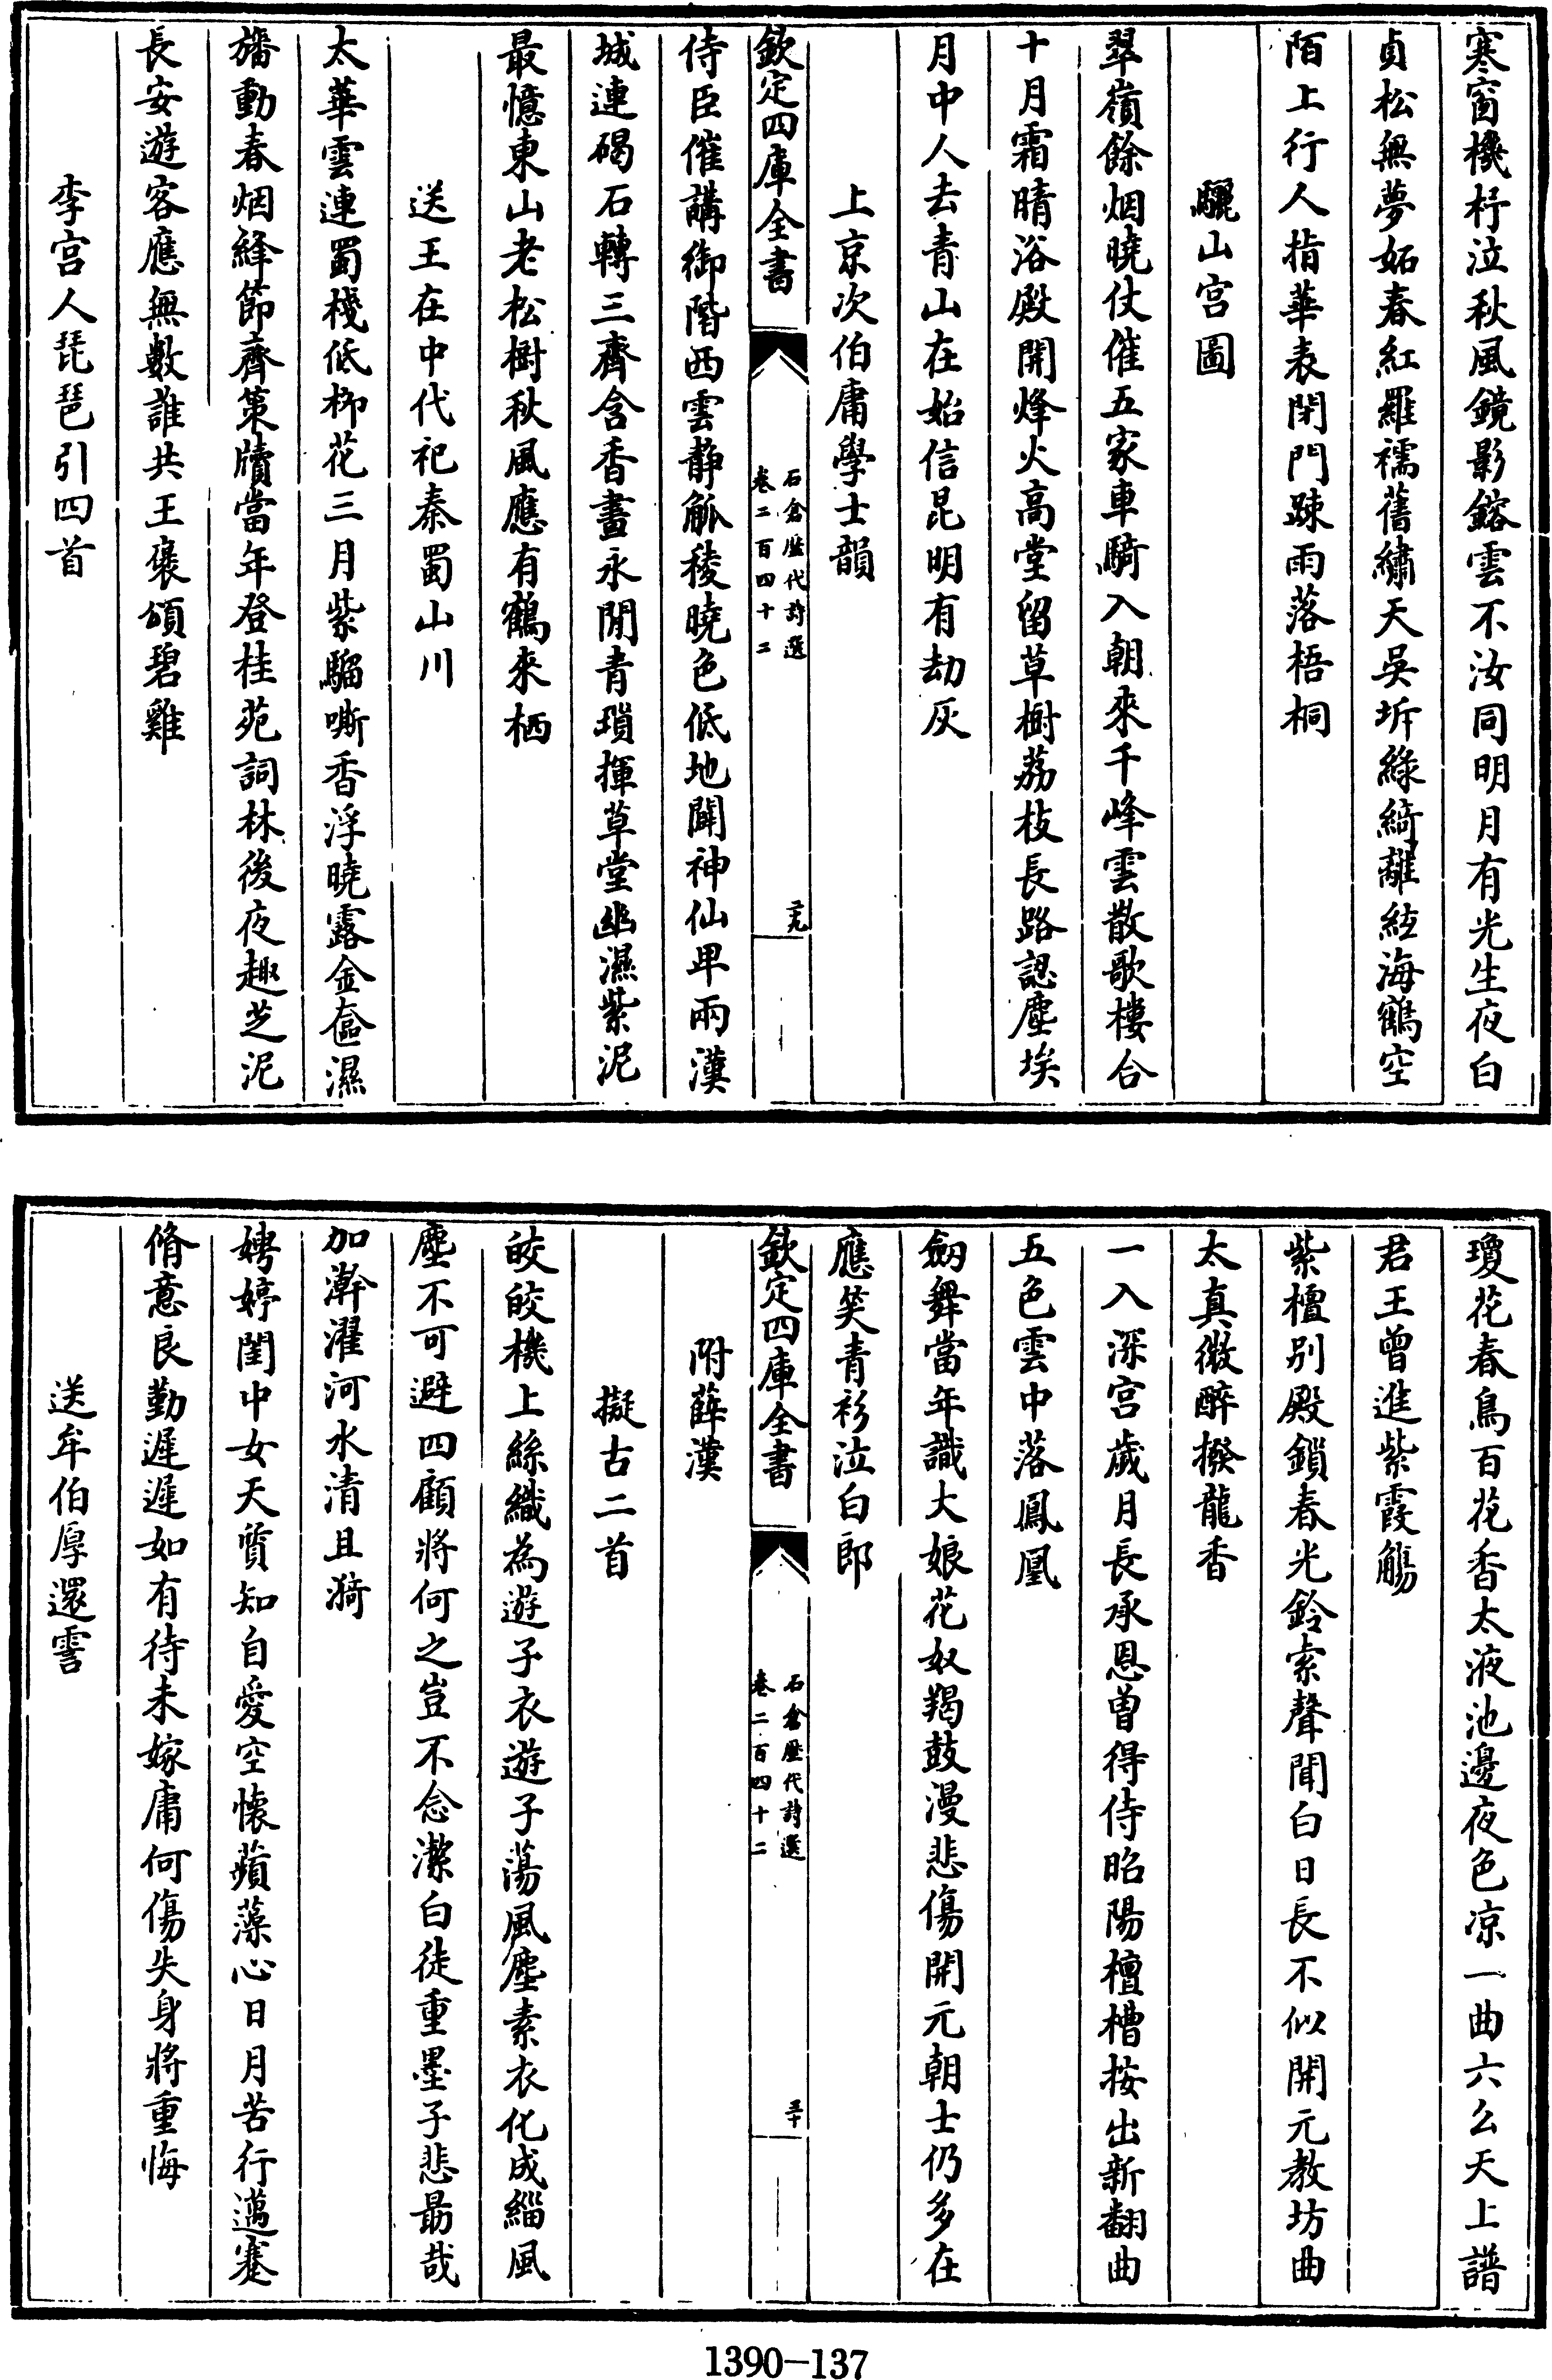 寒窗機杼泣秋風鏡影鎔雲不汝同明月有光生夜白
貞松無夢妬春紅羅襦舊繡天吳坼綠綺離絃海鶴空
陌上行人指華表閉門踈雨落梧桐
驪山宮圖
翠嶺餘烟曉仗催五家車騎入朝來千峰雲散歌樓合
十月霜晴浴殿開烽火高堂留草樹荔枝長路認塵埃
月中人去青山在始信昆明有劫灰
上京次伯庸學士韻
欽定四庫全書
石倉歷代詩選
卷二百四十二
二十九
侍臣催講御階西雲靜觚稜曉色低地闢神仙卑兩漢
城連碣石轉三齊含香晝永閒青瑣揮草堂幽濕紫泥
最憶東山老松樹秋風應有鶴來栖
送王在中代祀秦蜀山川
太華雲連蜀棧低柳花三月紫騮嘶香浮曉露金匳濕
旛動春烟絳節齊策牘當年登桂苑詞林後夜趣芝泥
長安遊客應無數誰共王褒頌碧雞
李宮人琵琶引四首
瓊花春鳥百花香太液池邊夜色凉一曲六么天上譜
君王曾進紫霞觴
紫檀別殿鎖春光鈴索聲聞白日長不似開元教坊曲
太真微醉撥龍香
一入深宮歲月長承恩曾得侍昭陽檀槽按出新翻曲
五色雲中落鳳凰
劒舞當年識大娘花奴羯鼓漫悲傷開元朝士仍多在
應笑青衫泣白郎
欽定四庫全書
石倉歷代詩選
卷二百四十二
三十
附薛漢
擬古二首
皎皎機上絲織為遊子衣遊子蕩風塵素衣化成緇風
塵不可避四顧將何之豈不念潔白徒重墨子悲勗哉
加澣濯河水清且漪
娉婷閨中女天質知自愛空懷蘋藻心日月苦行邁蹇
脩意良勤遲遲如有待未嫁庸何傷失身將重悔
送牟伯厚還霅
1390—137